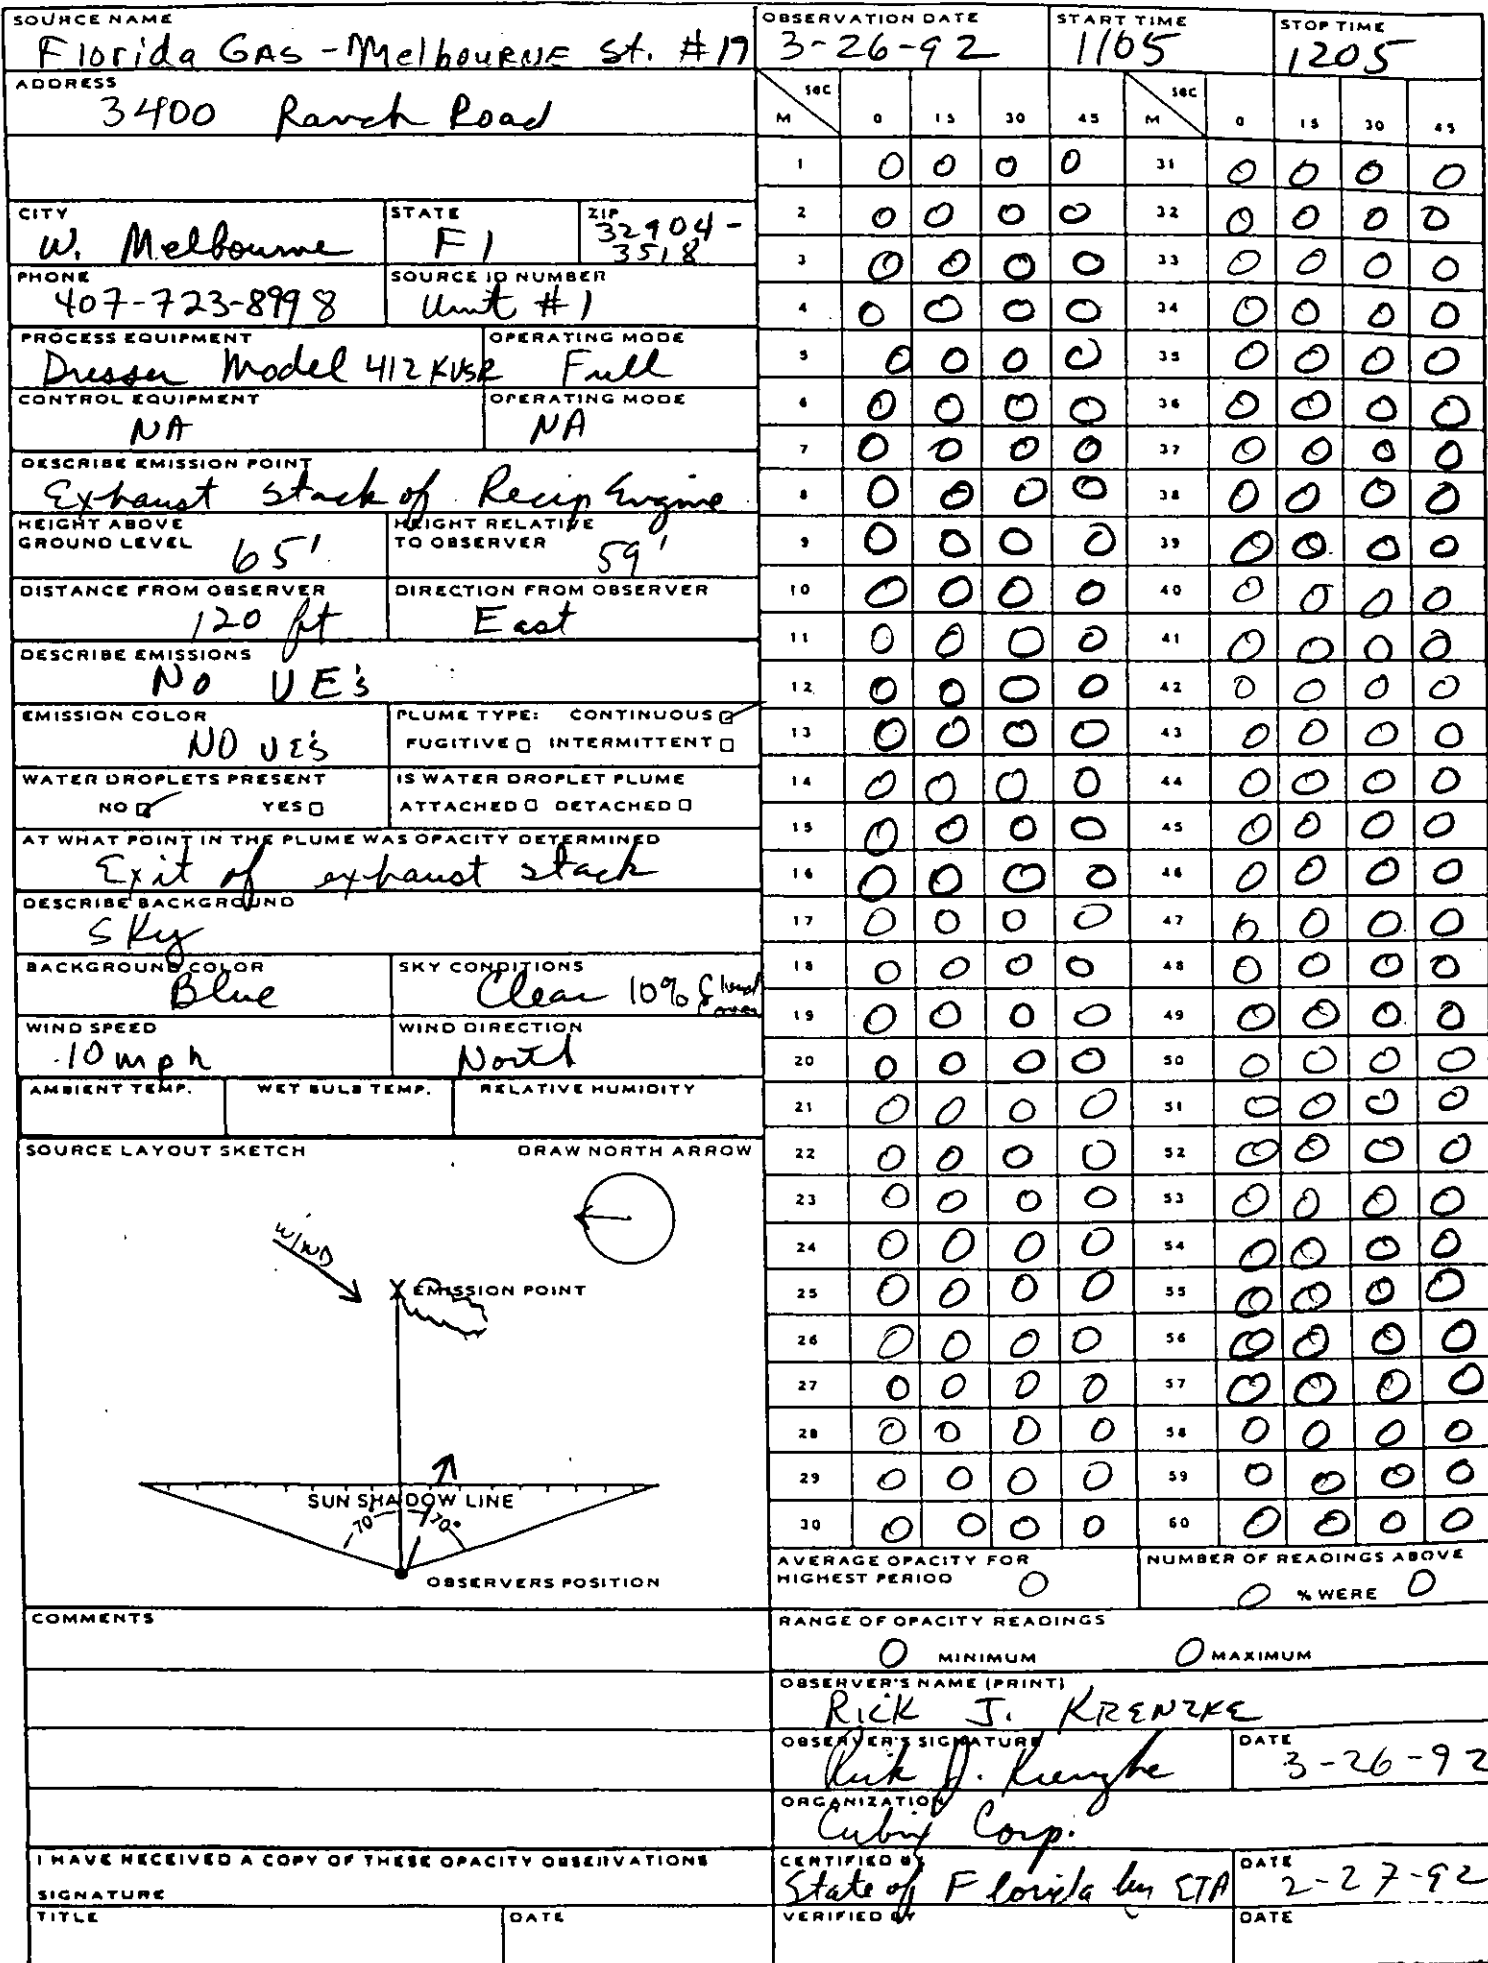 SOURCE NAME
Florida GAS - Melbourne St. #19
OBSERVATION DATE
3-26-92
START TIME
1105
STOP TIME
1205
ADDRESS
3400 Ranch Road
CITY
W. Melbourne
STATE
Fl
ZIP
32904-
3518
PHONE
407-723-8998
SOURCE ID NUMBER
Unit #1
PROCESS EQUIPMENT
Dresser Model 412 KVSR
OPERATING MODE
Full
CONTROL EQUIPMENT
NA
OPERATING MODE
NA
DESCRIBE EMISSION POINT
Exhaust Stack of Recip Engine
HEIGHT ABOVE
GROUND LEVEL 65'
HEIGHT RELATIVE
TO OBSERVER 59'
DISTANCE FROM OBSERVER
120 ft
DIRECTION FROM OBSERVER
East
DESCRIBE EMISSIONS
No UE's
EMISSION COLOR
NO UE's
PLUME TYPE: CONTINUOUS
FUGITIVE INTERMITTENT
WATER DROPLETS PRESENT
NO YES
IS WATER DROPLET PLUME
ATTACHED DETACHED
AT WHAT POINT IN THE PLUME WAS OPACITY DETERMINED
Exit of exhaust stack
DESCRIBE BACKGROUND
Sky
BACKGROUND COLOR
Blue
SKY CONDITIONS
Clear 10% Cloud
Cover
WIND SPEED
10 mph
WIND DIRECTION
North
AMBIENT TEMP.
WET BULB TEMP.
RELATIVE HUMIDITY
SOURCE LAYOUT SKETCH
DRAW NORTH ARROW
WIND
X EMISSION POINT
SUN SHADOW LINE
70° 70°
OBSERVERS POSITION
COMMENTS
I HAVE RECEIVED A COPY OF THESE OPACITY OBSERVATIONS
SIGNATURE
TITLE
DATE
M SEC 0 15 30 45 M SEC 0 15 30 45
1 0 0 0 0 31 0 0 0 0
2 0 0 0 0 32 0 0 0 0
3 0 0 0 0 33 0 0 0 0
4 0 0 0 0 34 0 0 0 0
5 0 0 0 0 35 0 0 0 0
6 0 0 0 0 36 0 0 0 0
7 0 0 0 0 37 0 0 0 0
8 0 0 0 0 38 0 0 0 0
9 0 0 0 0 39 0 0 0 0
10 0 0 0 0 40 0 0 0 0
11 0 0 0 0 41 0 0 0 0
12 0 0 0 0 42 0 0 0 0
13 0 0 0 0 43 0 0 0 0
14 0 0 0 0 44 0 0 0 0
15 0 0 0 0 45 0 0 0 0
16 0 0 0 0 46 0 0 0 0
17 0 0 0 0 47 0 0 0 0
18 0 0 0 0 48 0 0 0 0
19 0 0 0 0 49 0 0 0 0
20 0 0 0 0 50 0 0 0 0
21 0 0 0 0 51 0 0 0 0
22 0 0 0 0 52 0 0 0 0
23 0 0 0 0 53 0 0 0 0
24 0 0 0 0 54 0 0 0 0
25 0 0 0 0 55 0 0 0 0
26 0 0 0 0 56 0 0 0 0
27 0 0 0 0 57 0 0 0 0
28 0 0 0 0 58 0 0 0 0
29 0 0 0 0 59 0 0 0 0
30 0 0 0 0 60 0 0 0 0
AVERAGE OPACITY FOR
HIGHEST PERIOD 0
NUMBER OF READINGS ABOVE
0 % WERE 0
RANGE OF OPACITY READINGS
0 MINIMUM 0 MAXIMUM
OBSERVER'S NAME (PRINT)
RICK J. KRENZKE
OBSERVER'S SIGNATURE
Rick J. Krenzke
DATE
3-26-92
ORGANIZATION
Cubix Corp.
CERTIFIED BY
State of Florida by ETA
DATE
2-27-92
VERIFIED BY
DATE